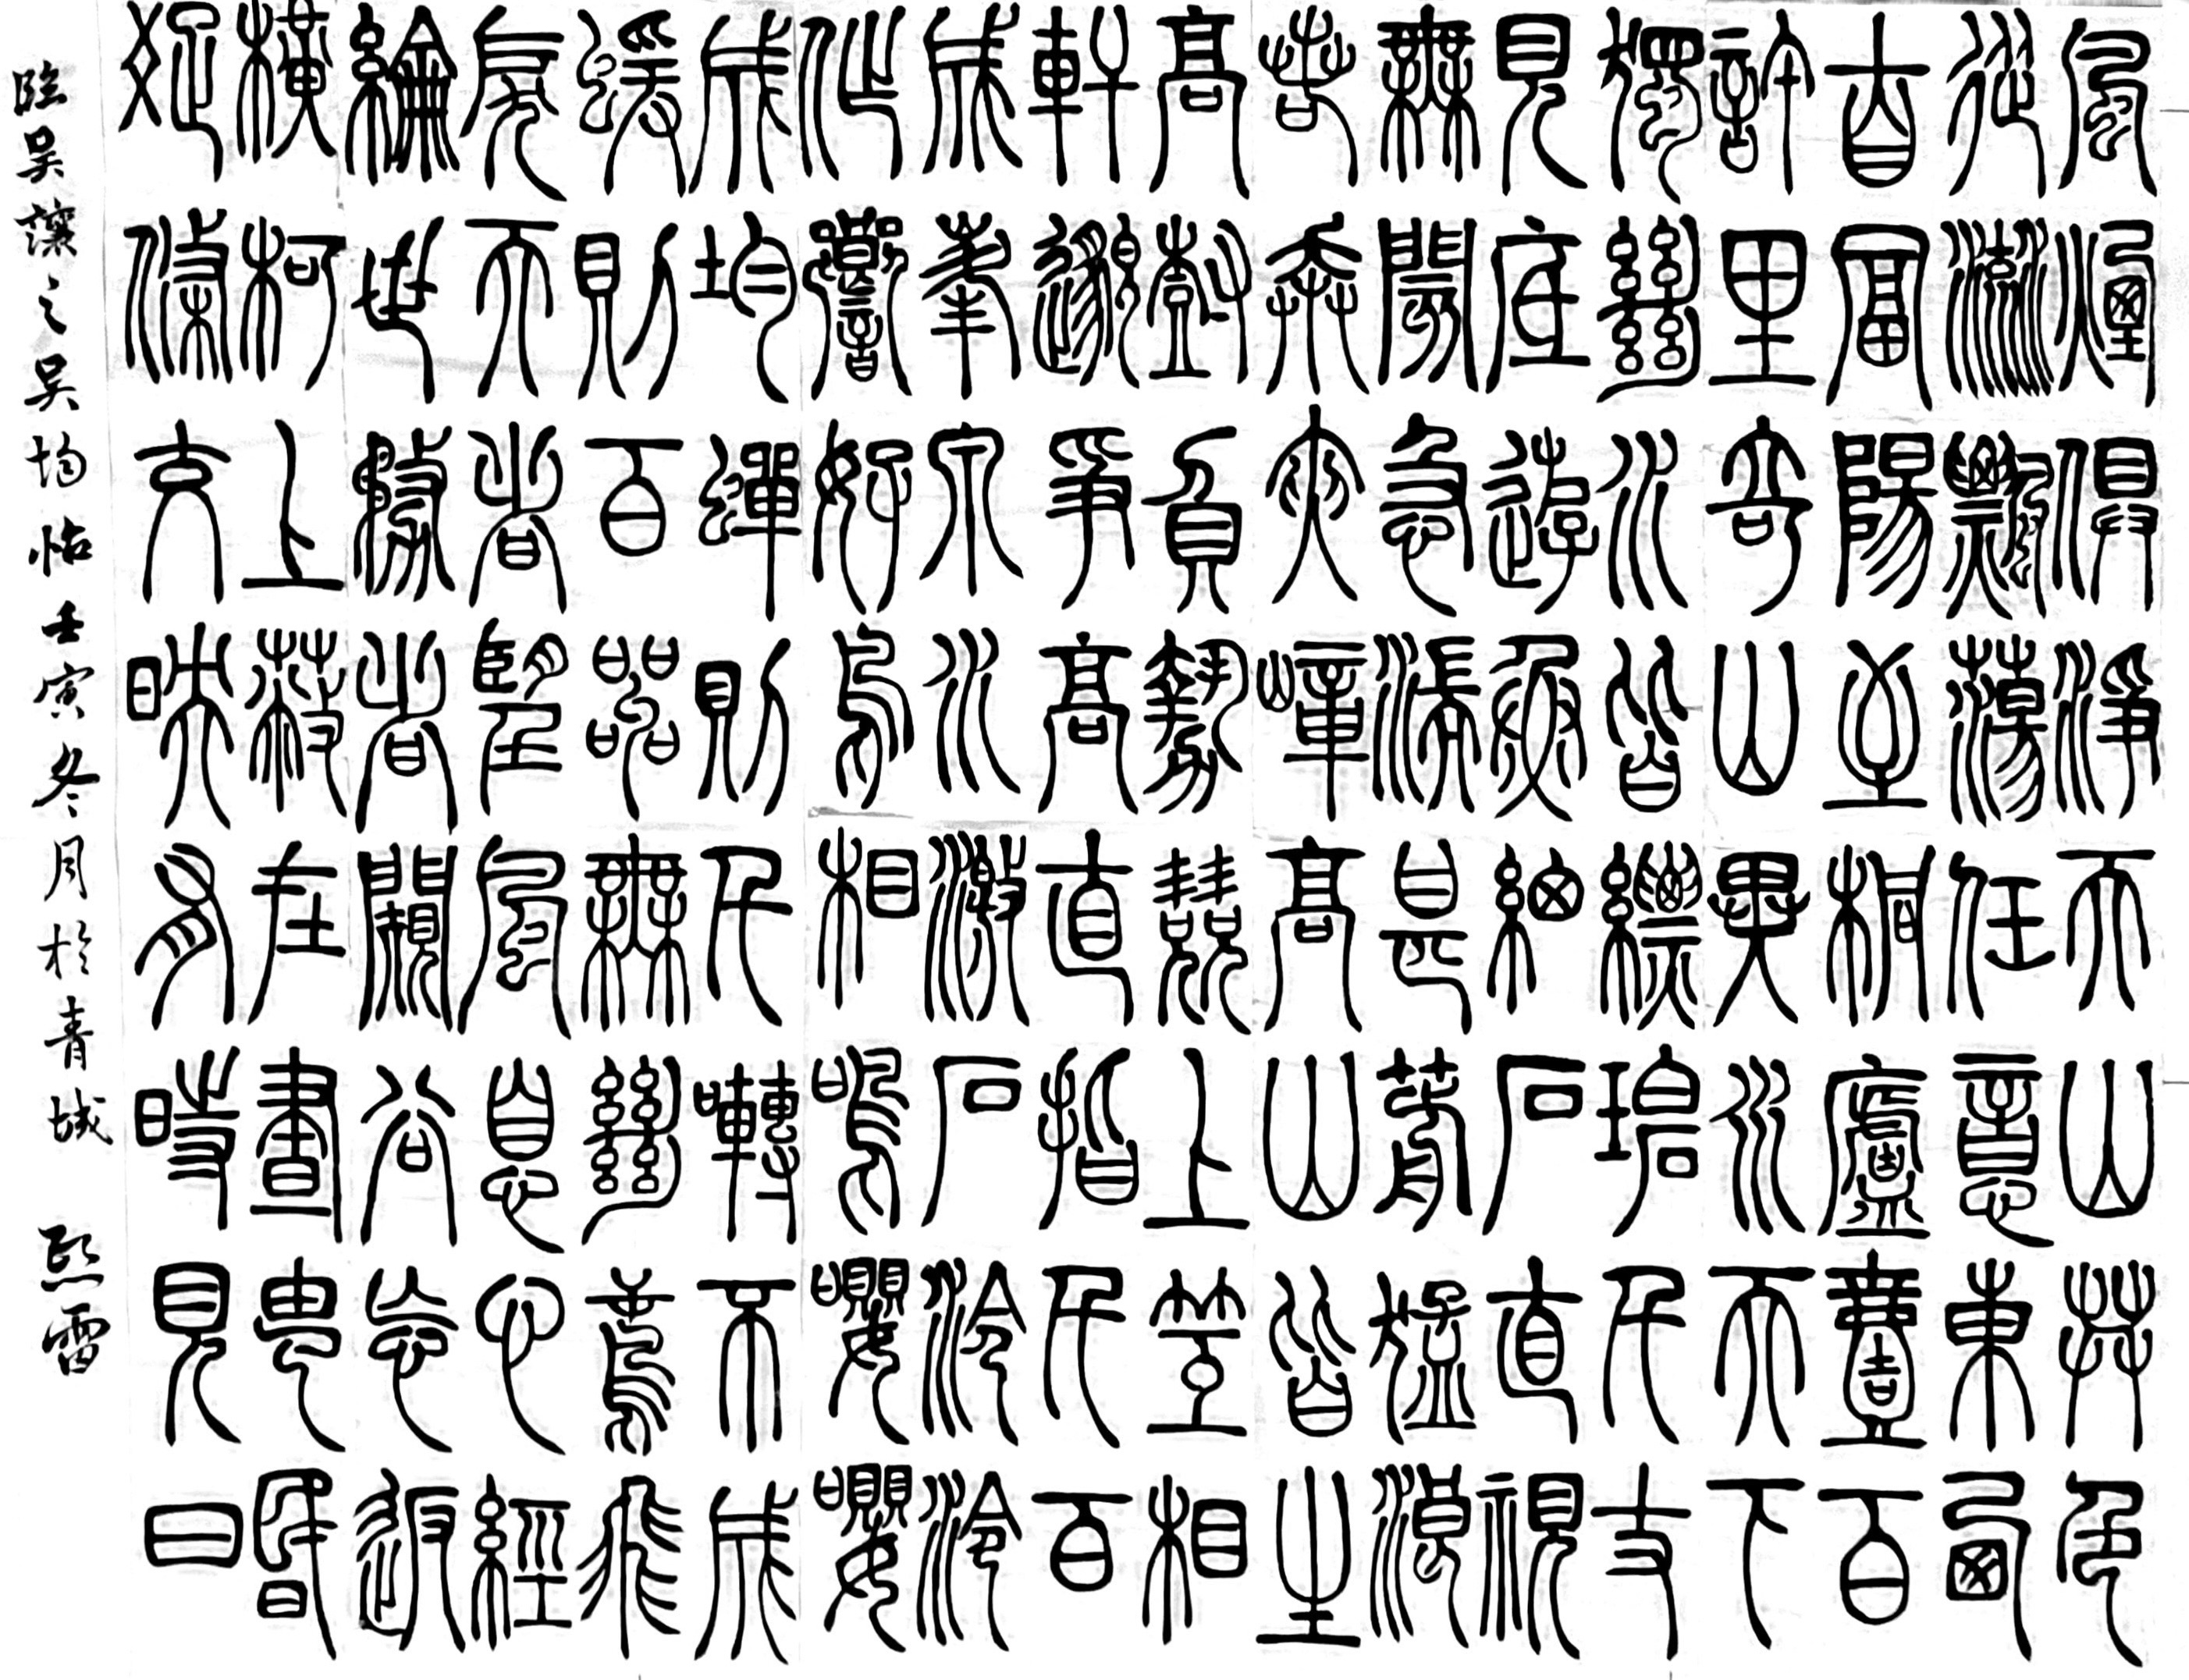 風煙俱淨天山共色
從流飄蕩任意東西
自富陽至桐廬壹百
許里奇山異水天下
獨絕水皆縹碧千丈
見底遊魚細石直視
無閡急湍甚箭猛浪
若奔夾嶂高山皆生
高樹負勢競上互相
軒邈爭高直指千百
成峯泉水激石泠泠
作響好鳥相鳴嚶嚶
成均蟬則千囀不成
蝯則百嘂無絕鳶飛
戾天者望風息心經
綸世務者闚谷忘返
橫柯上蔽在晝昏
疏條交映有時見日
臨吳讓之吳均帖壬寅冬月於青城 熙雷